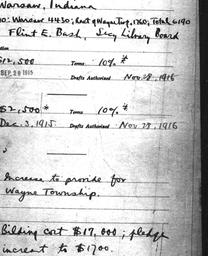 Warsaw, Indiana
Warsaw 4430; Rest of Wayne Twp. 1760; Total 6190
Flint E. Bash, Secy Library Board
$12,500 Terms 10%
SEP 20 1915 Drafts Authorized Nov. 28, 1916
$2,500 * Terms 10% *
Dec. 3, 1915 Drafts Authorized Nov. 28, 1916
Increase to provide for
Wayne Township.
Bilding cost $17,000; pledge
increast to $1700.